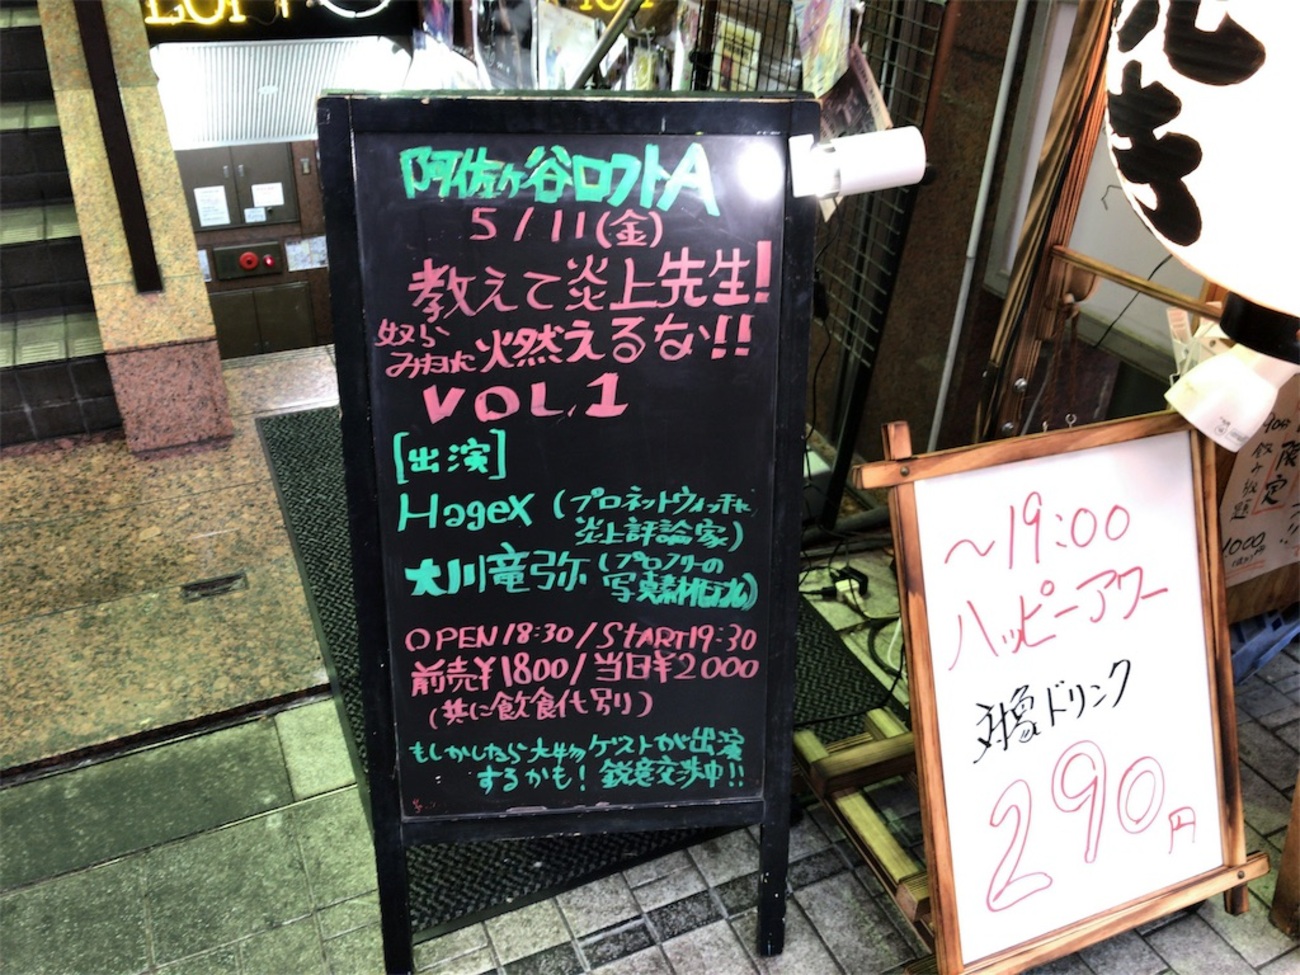 阿佐ヶ谷ロフトA
5/11(金)
教えて炎上先生!
奴らみたいに燃えるな!!
VOL.1
[出演]
Hagex (プロネットウォッチャー,
炎上評論家)
大川竜弥(プロフリーの
写真素材モデル)
OPEN18:30/START19:30
前売¥1800/当日¥2000
(共に飲食代別り)
もしかしたら大物ゲストが出演
するかも! 鋭意交渉中!!
〜19:00
ハッピーアワー
対象ドリンク
290円
飲み放題
限定
1000